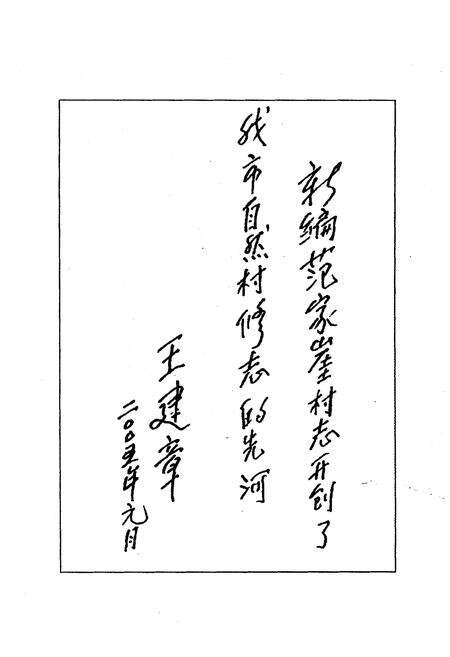 新编范家崖村志开创了
我市自然村修志的先河
王建章
二〇〇五年元月